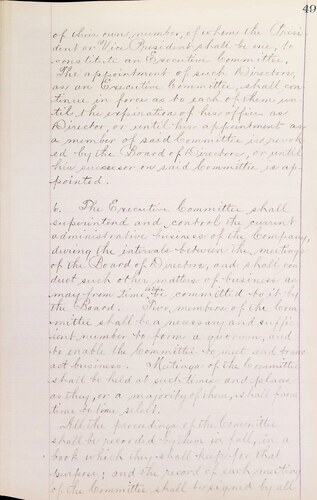 49
of their own number, of whom the Presi-
dent or Vice President shall be one, to
constitute an Executive Committee.
The appointment of such Directors,
as an Executive Committee, shall con-
tinue in force as to each of them un-
til the expiration of his office as
Director, or until his appointment as
a member of said Committee is revok-
ed by the Board of Directors, or until
his successor on said Committee is ap-
pointed.
6. The Executive Committee shall
superintend and control the current
administrative business of the Company,
during the intervals between the meetings
of the Board of Directors, and shall con-
duct such other matters of business as
may from time to time be committed to it by
the Board. Two members of the Com-
mittee shall be a necessary and suffic-
ient number to form a quorum, and
to enable the Committee to meet and trans-
act business. Meetings of the Committee
shall be held at such times and places
as they, or a majority of them, shall from
time to time select.
All the proceedings of the Committee
shall be recorded by them in full, in a
book which they shall keep for that
purpose; and the record of each meeting
of the Committee shall be signed by all